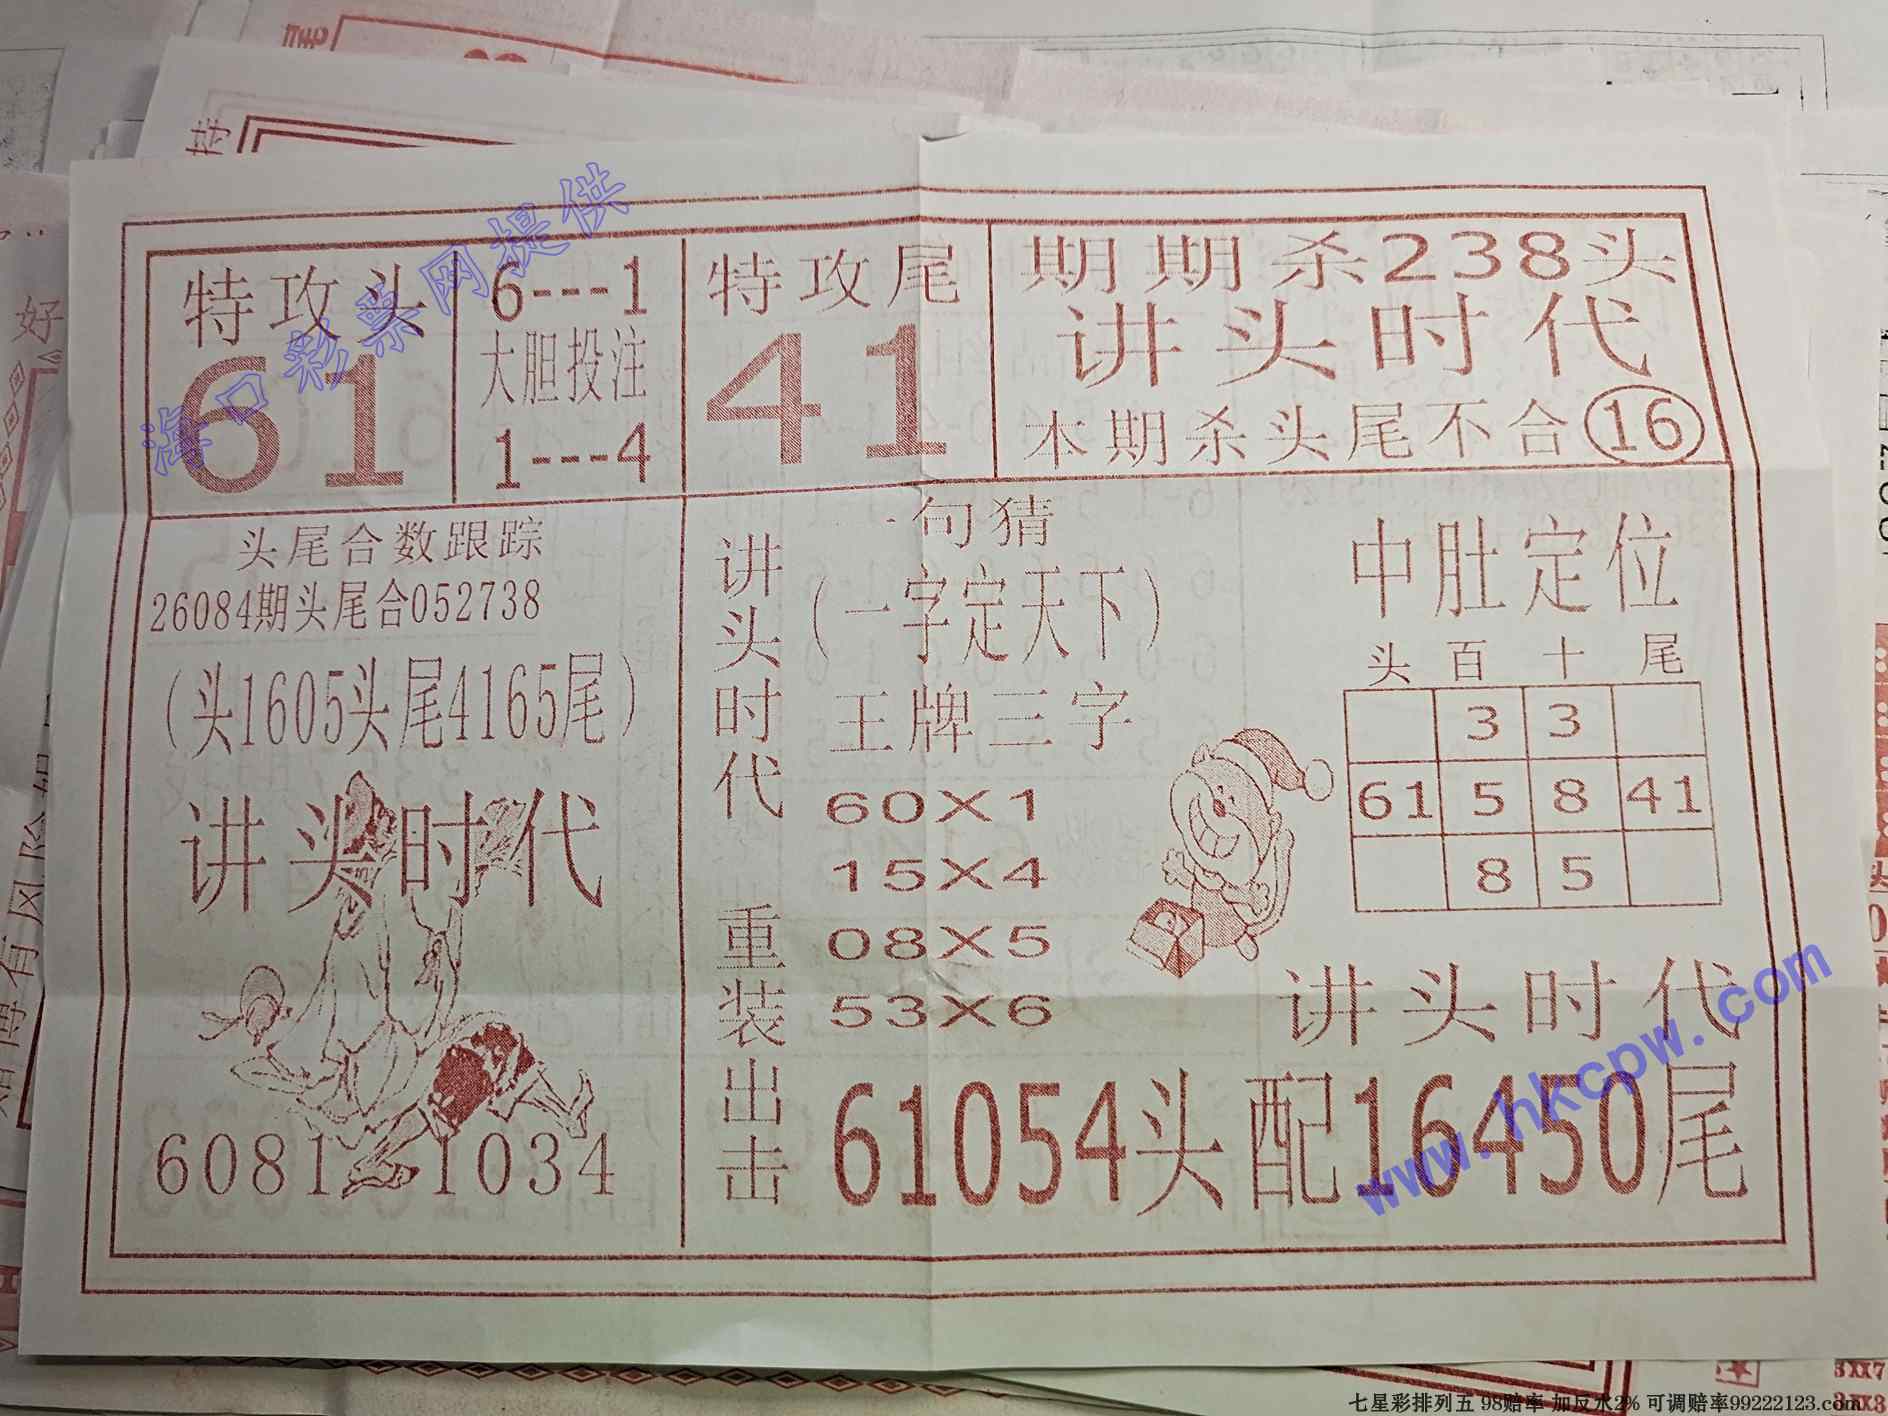 特攻头
61
6---1
大胆投注
1---4
特攻尾
41
期期杀238头
讲头时代
本期杀头尾不合16
头尾合数跟踪
26084期头尾合052738
（头1605头尾4165尾）
讲头时代
6081 1034
讲头时代
重装出击
句猜
（一字定天下）
王牌三字
60X1
15X4
08X5
53X6
中肚定位
头 百 十 尾
3 3
61 5 8 41
8 5
讲头时代
61054头配16450尾
海口彩票网提供
www.hkcpw.com
好
特
七星彩排列五 98赔率 加反水2% 可调赔率99222123.com